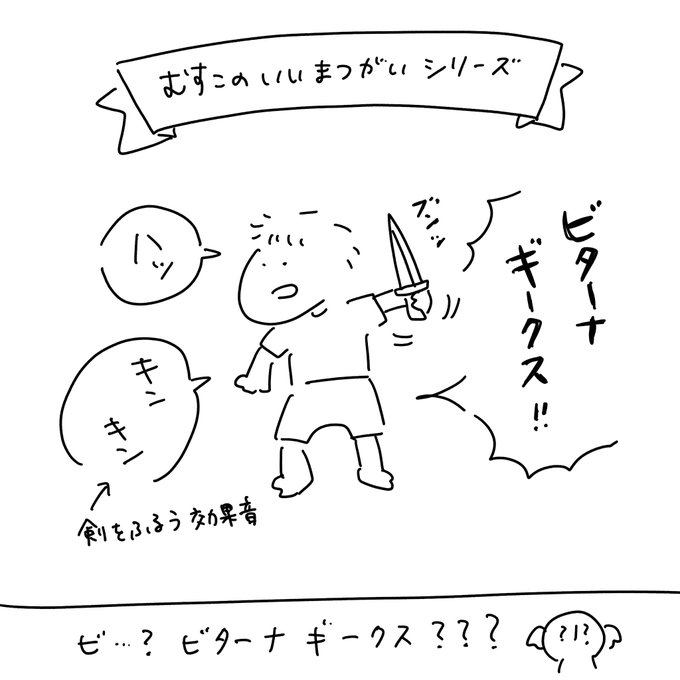 むすこの いいまつがい シリーズ
ハッ
ブンッ
ビターナ
ギークス!!
キン
キン
剣をふるう効果音
ビ…? ビターナ ギークス???
?!?